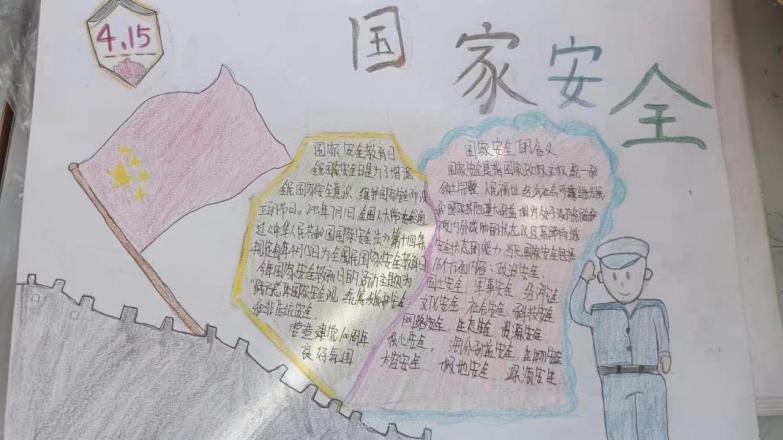 4.15
国家安全
国家安全教育日
全民国家安全日是为了增强
全民国家安全意识,维护国家安全而设
立的节日。2015年7月1日全国人大常委会通
过《中华人民共和国国家安全法》第十四条
规定每年4月15日为全民国家安全教育日
今年国家安全教育日的活动主题为
营造建党100周年
良好氛围
国家安全的含义
国家安全是指国家政权、主权、统一和
领土完整、人民福祉、经济社会可持续发展
和国家其他重大利益相对处于没有危险和
安全状态的能力
16个方面内容:政治安全
国土安全 军事安全 经济安全
文化安全 社会安全 科技安全
网络安全 生态安全 资源安全
核心安全, 海外利益安全
太空安全 极地安全 深海安全